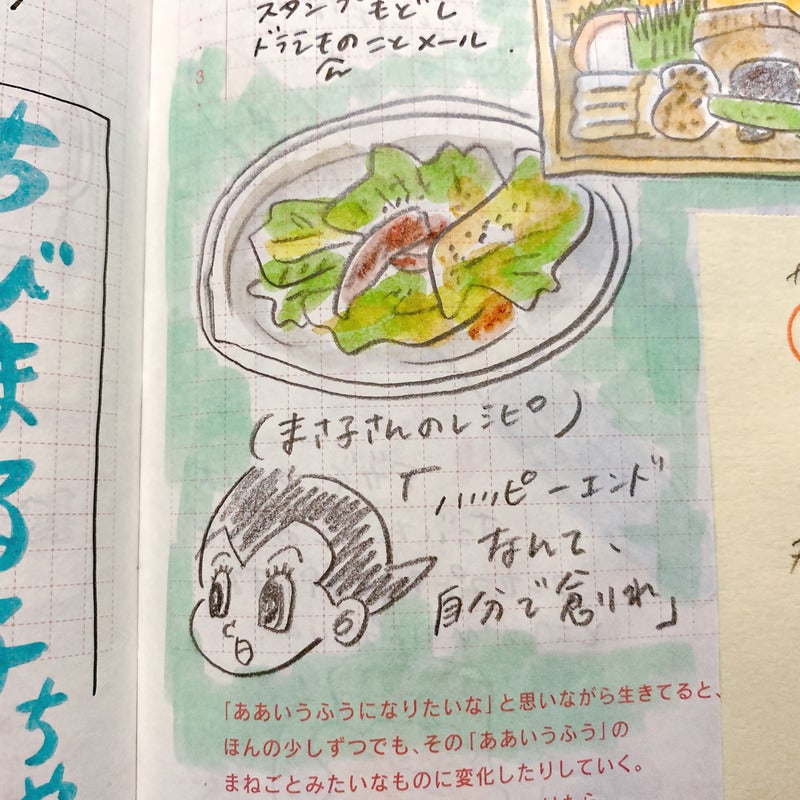 スタンプもどし
ドラえもののことメール.
3
ちびまる子ちゃ
(まさ子さんのレシピ)
「ハッピーエンド
なんて、
自分で創りれ」
「ああいうふうになりたいな」と思いながら生きてると、
ほんの少しずつでも、その「ああいうふう」の
まねごとみたいなものに変化したりしていく。